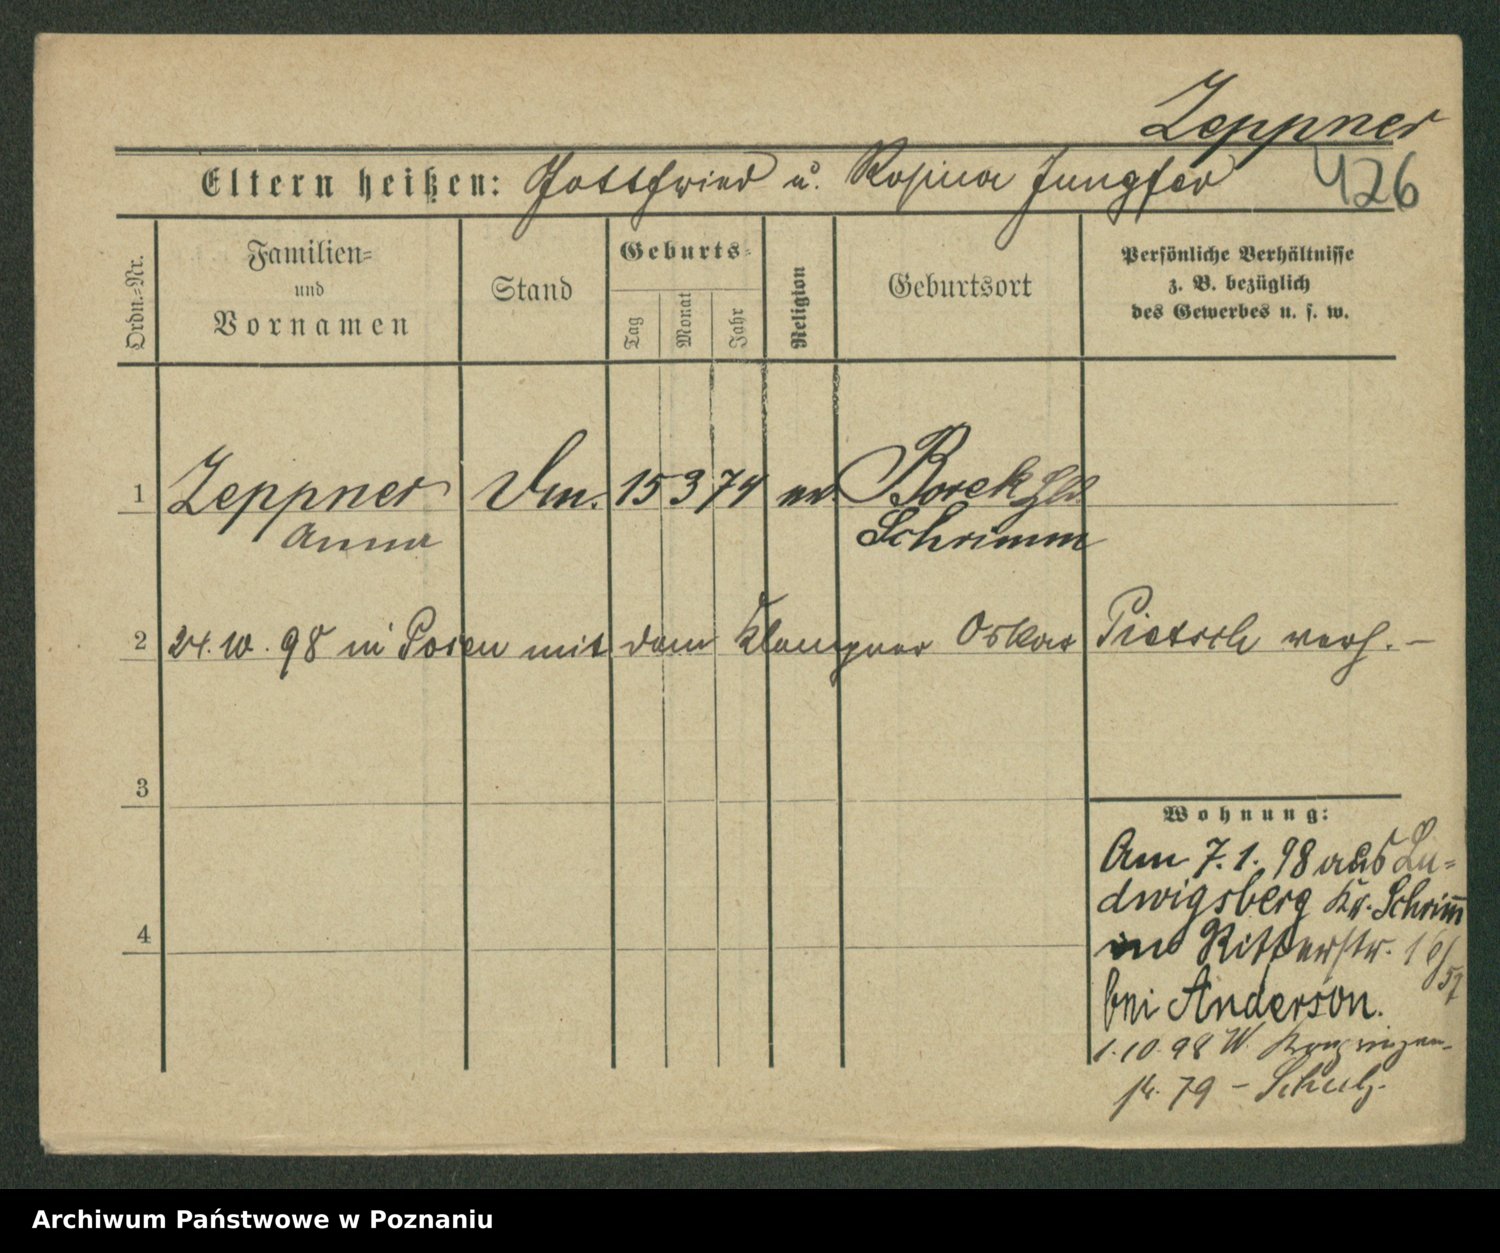 Zeppner
426
Eltern heißen: Gottfried u. Rosina Jungfer
Ordn.-Nr.
Familien-
und
Vornamen
Stand
Geburts-
Tag
Monat
Jahr
Religion
Geburtsort
Persönliche Verhältnisse
z. B. bezüglich
des Gewerbes u. s. w.
1 Zeppner 15 3 74 ev. Borek Hld.
Anna Schrimm
2 24.10.98 in Posen mit dem Klempner Oskar Pietsch verh. –
3
4
Wohnung:
Am 7.1.98 aus Lu-
dwigsberg Kr. Schrimm
Ritterstr. 16/
37
bei Anderson.
1.10.98 W.
str. 79 – Schulz.
Archiwum Państwowe w Poznaniu